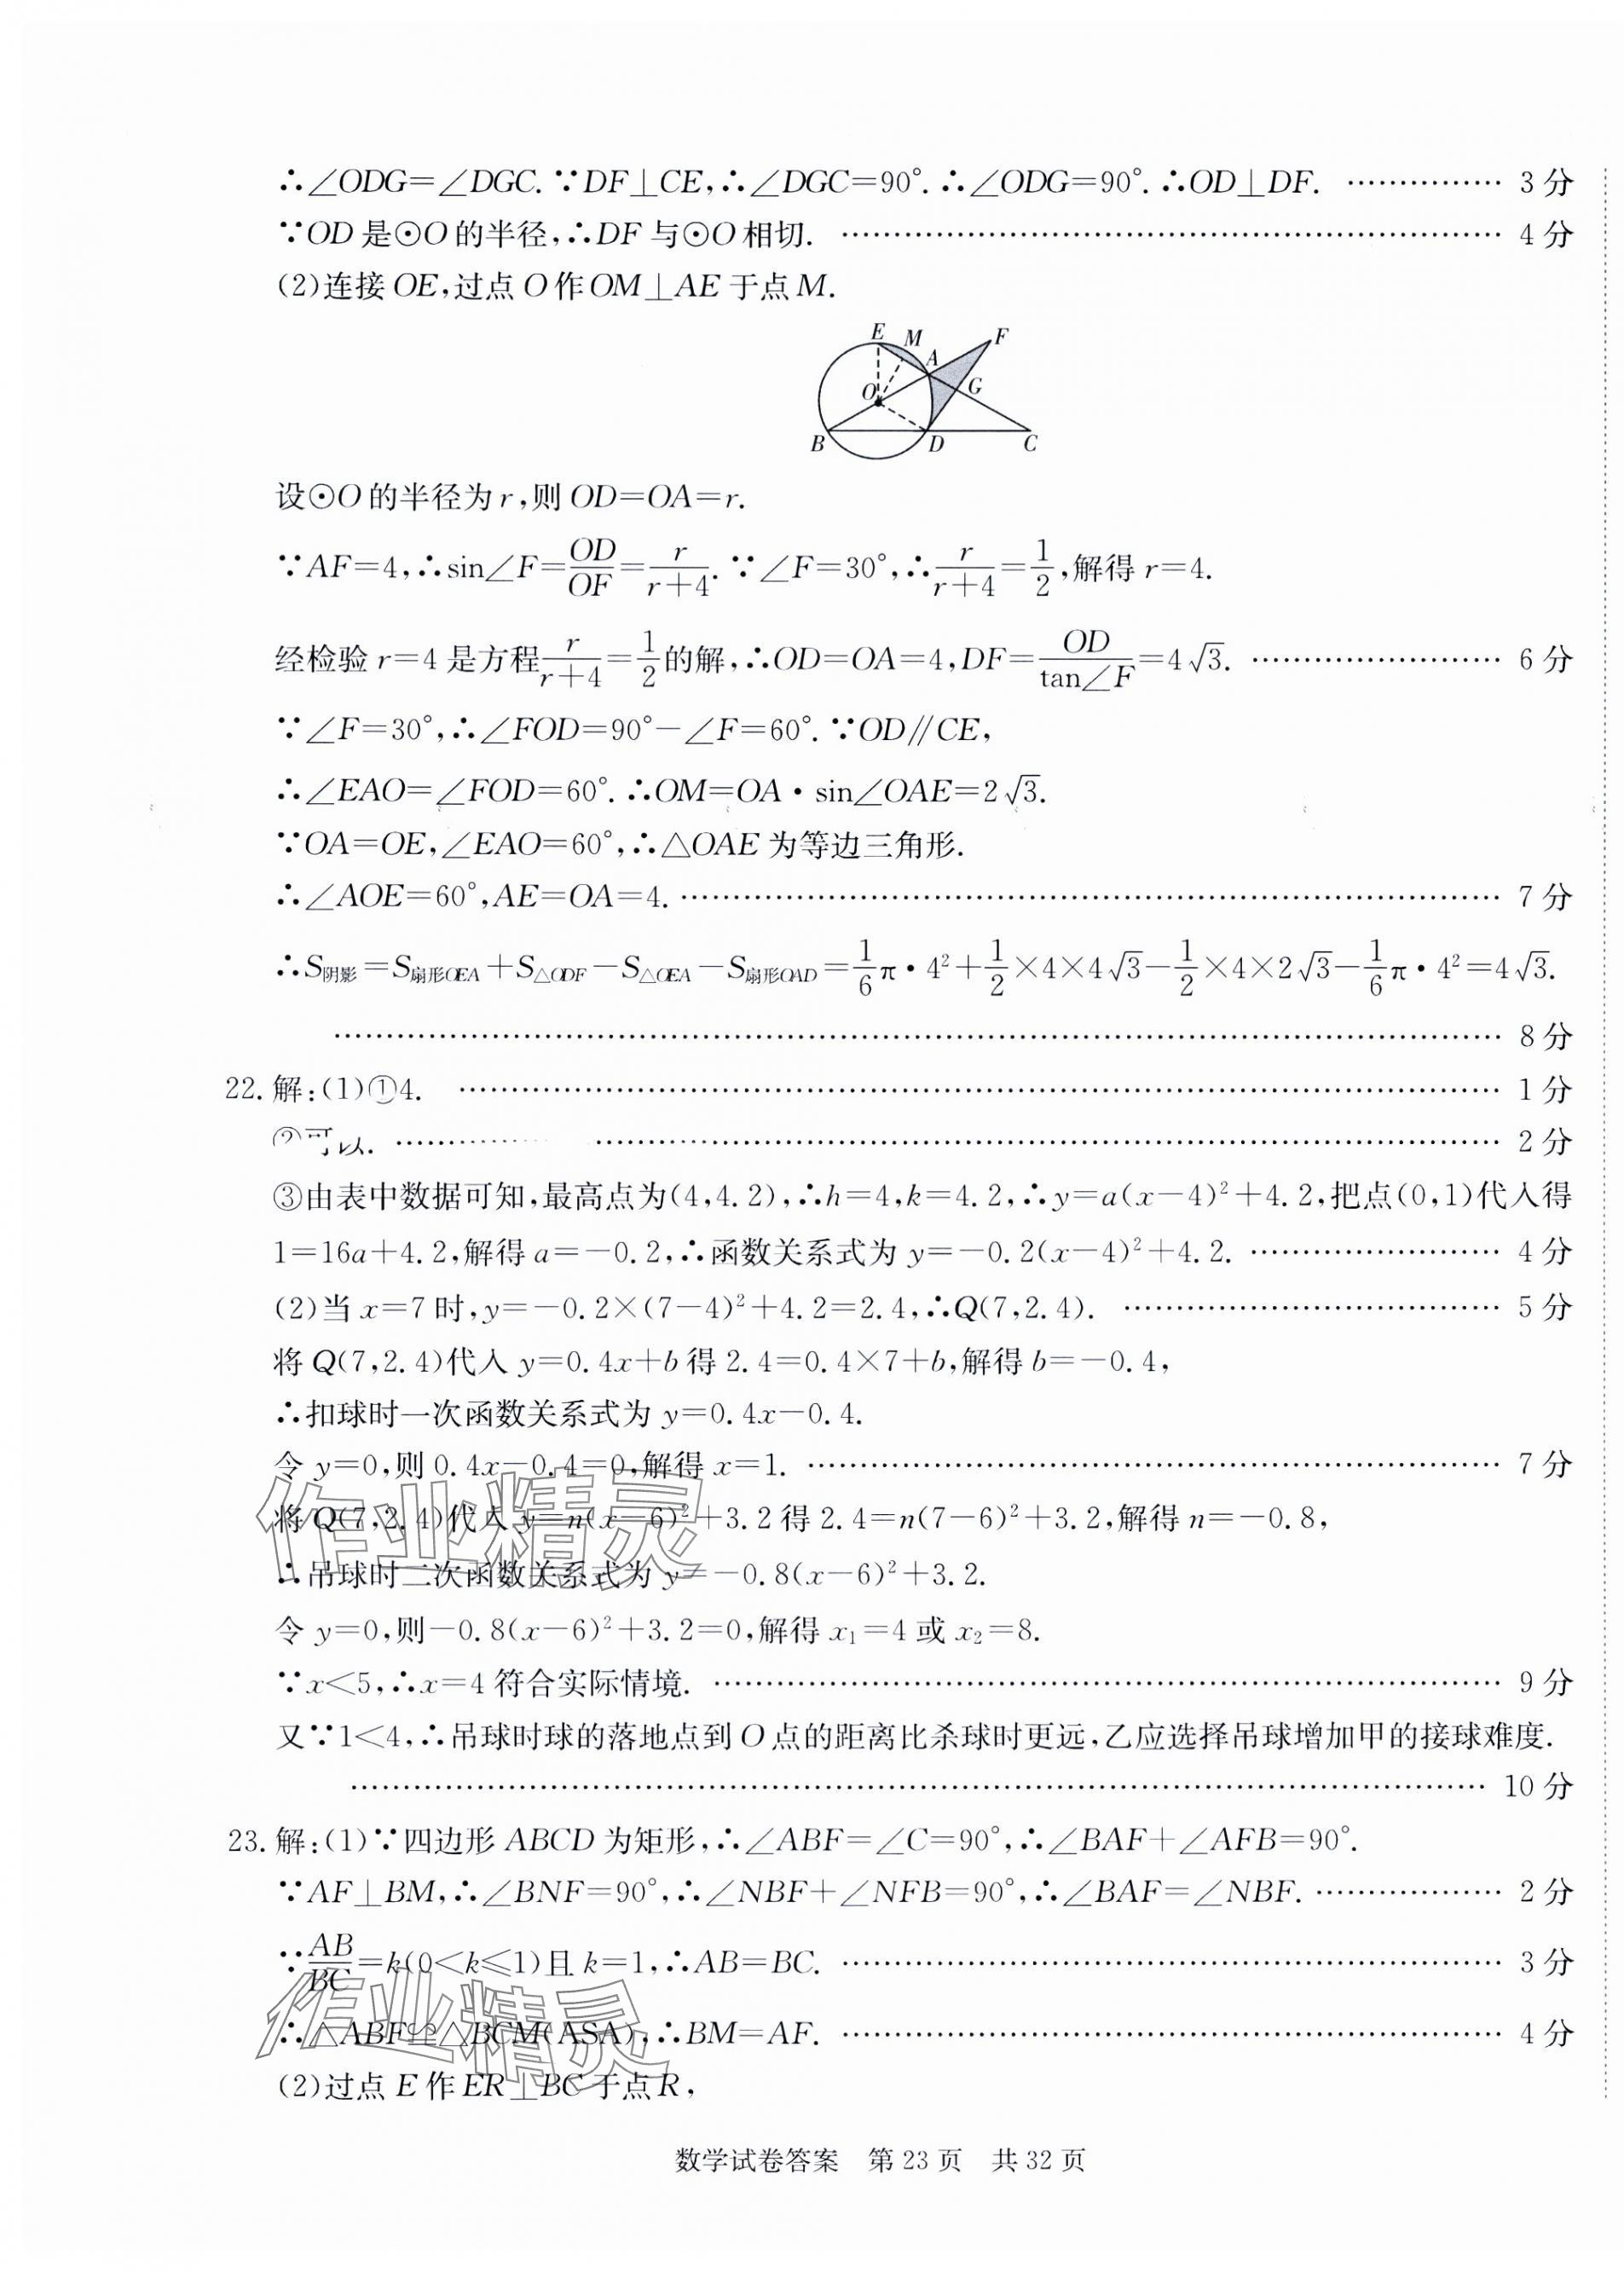 ∴∠ODG=∠DGC. ∵DF⊥CE,∴∠DGC=90°. ∴∠ODG=90°. ∴OD⊥DF. …………… 3分
∵OD是⊙O的半径,∴DF与⊙O相切. ………………………………………………………… 4分
(2)连接OE,过点O作OM⊥AE于点M.
E M A F
O G
B D C
设⊙O的半径为r,则OD=OA=r.
∵AF=4,∴sin∠F=OD/OF=r/(r+4). ∵∠F=30°,∴r/(r+4)=1/2,解得r=4.
经检验r=4是方程r/(r+4)=1/2的解,∴OD=OA=4,DF=OD/tan∠F=4√3. …………………… 6分
∵∠F=30°,∴∠FOD=90°−∠F=60°. ∵OD∥CE,
∴∠EAO=∠FOD=60°. ∴OM=OA·sin∠OAE=2√3.
∵OA=OE,∠EAO=60°,∴△OAE为等边三角形.
∴∠AOE=60°,AE=OA=4. ……………………………………………………………………… 7分
∴S阴影=S扇形OEA+S△ODF−S△OEA−S扇形OAD=1/6π·4²+1/2×4×4√3−1/2×4×2√3−1/6π·4²=4√3.
……………………………………………………………………………………………………… 8分
22. 解:(1)①4. ………………………………………………………………………………………… 1分
②可以. ……………………………………………………………………………………………… 2分
③由表中数据可知,最高点为(4,4.2),∴h=4,k=4.2,∴y=a(x−4)²+4.2,把点(0,1)代入得
1=16a+4.2,解得a=−0.2,∴函数关系式为y=−0.2(x−4)²+4.2. …………………… 4分
(2)当x=7时,y=−0.2×(7−4)²+4.2=2.4,∴Q(7,2.4). ……………………………… 5分
将Q(7,2.4)代入y=0.4x+b得2.4=0.4×7+b,解得b=−0.4,
∴扣球时一次函数关系式为y=0.4x−0.4.
令y=0,则0.4x−0.4=0,解得x=1. …………………………………………………………… 7分
将Q(7,2.4)代入y=n(x−6)²+3.2得2.4=n(7−6)²+3.2,解得n=−0.8,
∴吊球时二次函数关系式为y=−0.8(x−6)²+3.2.
令y=0,则−0.8(x−6)²+3.2=0,解得x₁=4或x₂=8.
∵x<5,∴x=4符合实际情境. …………………………………………………………………… 9分
又∵1<4,∴吊球时球的落地点到O点的距离比杀球时更远,乙应选择吊球增加甲的接球难度.
…………………………………………………………………………………………………… 10分
23. 解:(1)∵四边形ABCD为矩形,∴∠ABF=∠C=90°,∴∠BAF+∠AFB=90°.
∵AF⊥BM,∴∠BNF=90°,∴∠NBF+∠NFB=90°,∴∠BAF=∠NBF. ……………… 2分
∵AB/BC=k(0<k≤1)且k=1,∴AB=BC. ………………………………………………………… 3分
∴△ABF≌△BCM(ASA),∴BM=AF. ………………………………………………………… 4分
(2)过点E作ER⊥BC于点R,
数学试卷答案 第23页 共32页
作业精灵
作业精灵